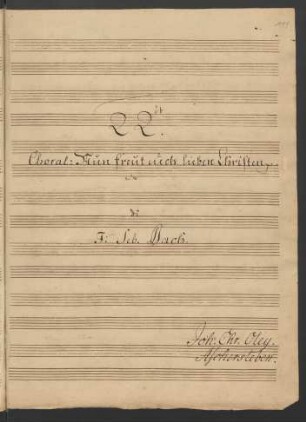 22.
Choral: Nun freut euch lieben Christen
di
J: Seb. Bach.
Joh. Chr. Oley.
Aschersleben.